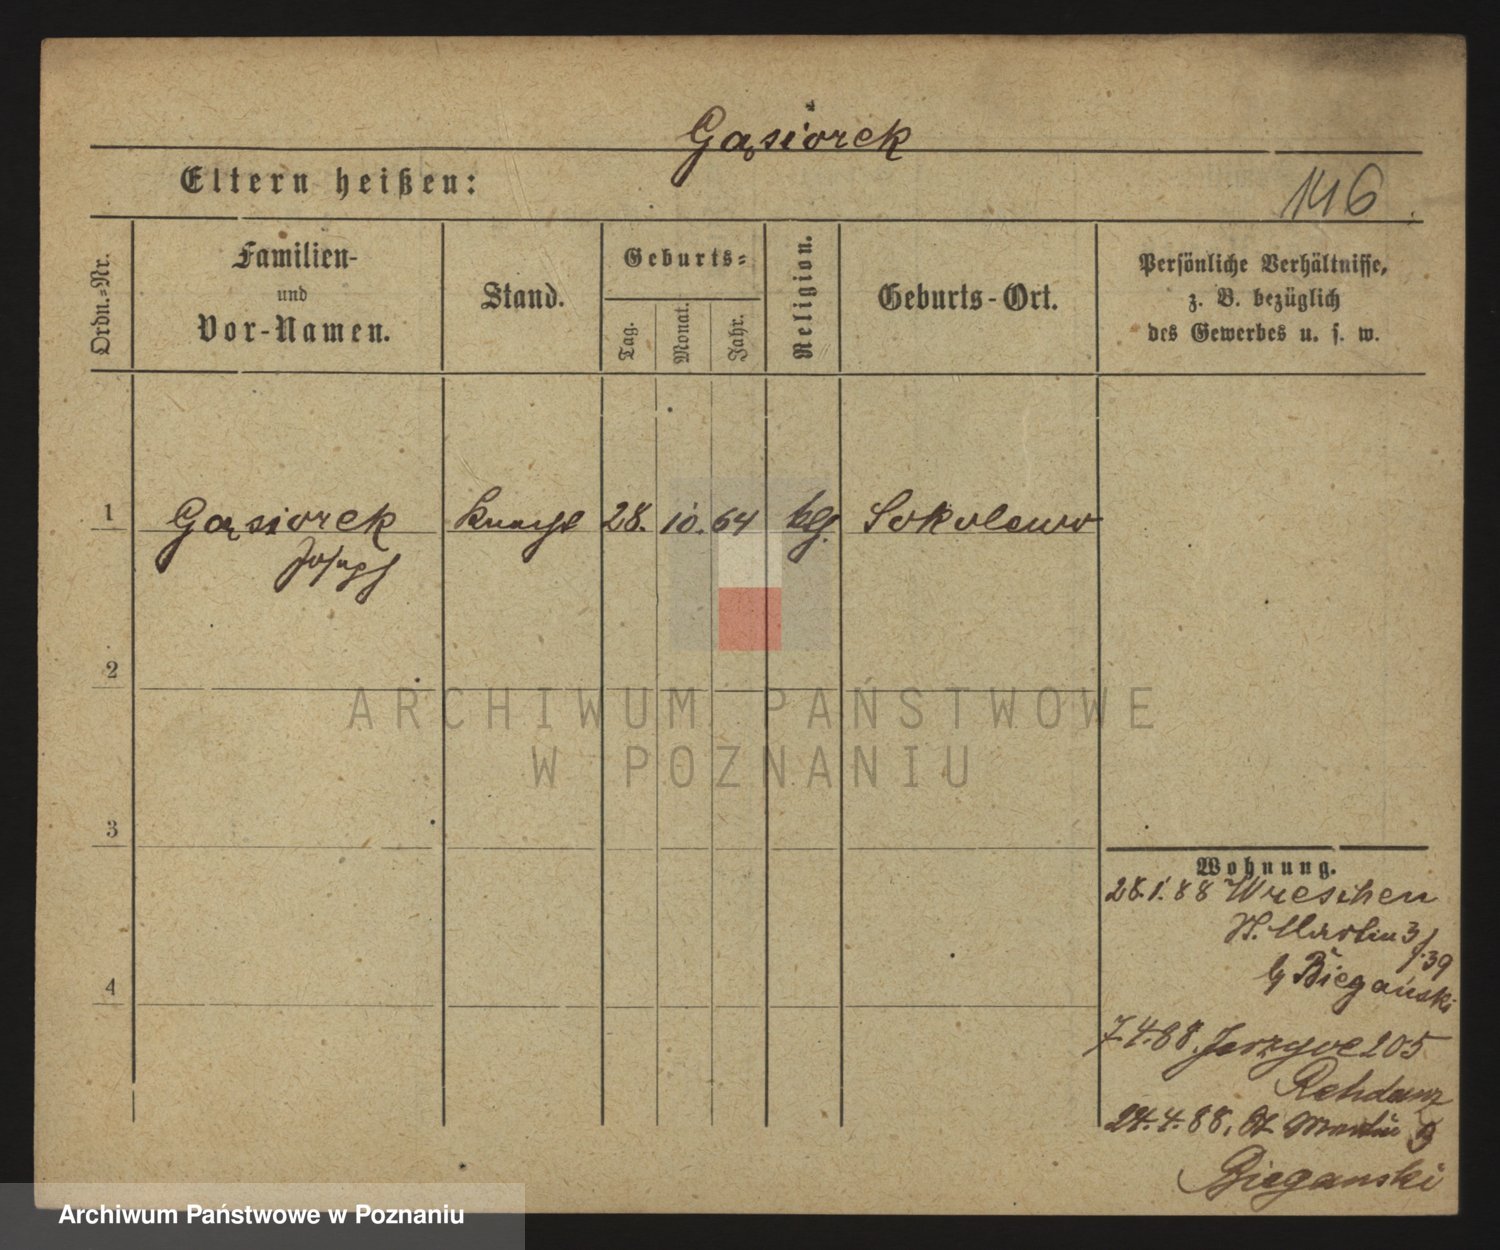 Gąsiorek
Eltern heißen:
146
Ordn.-Nr.
Familien-
und
Vor-Namen.
Stand.
Geburts-
Tag.
Monat.
Jahr.
Religion.
Geburts-Ort.
Persönliche Verhältnisse,
z. B. bezüglich
des Gewerbes u. s. w.
1
Gąsiorek
Joseph
Knecht
28. 10. 64
Sokolowo
2
3
4
Wohnung.
28.1.88 Wreschen
St. Martin 3/
39
Biegański
7.4.88. Jerzyce 205
Rehdanz
24.4.88. St. Martin
Bieganski
ARCHIWUM PAŃSTWOWE
W POZNANIU
Archiwum Państwowe w Poznaniu